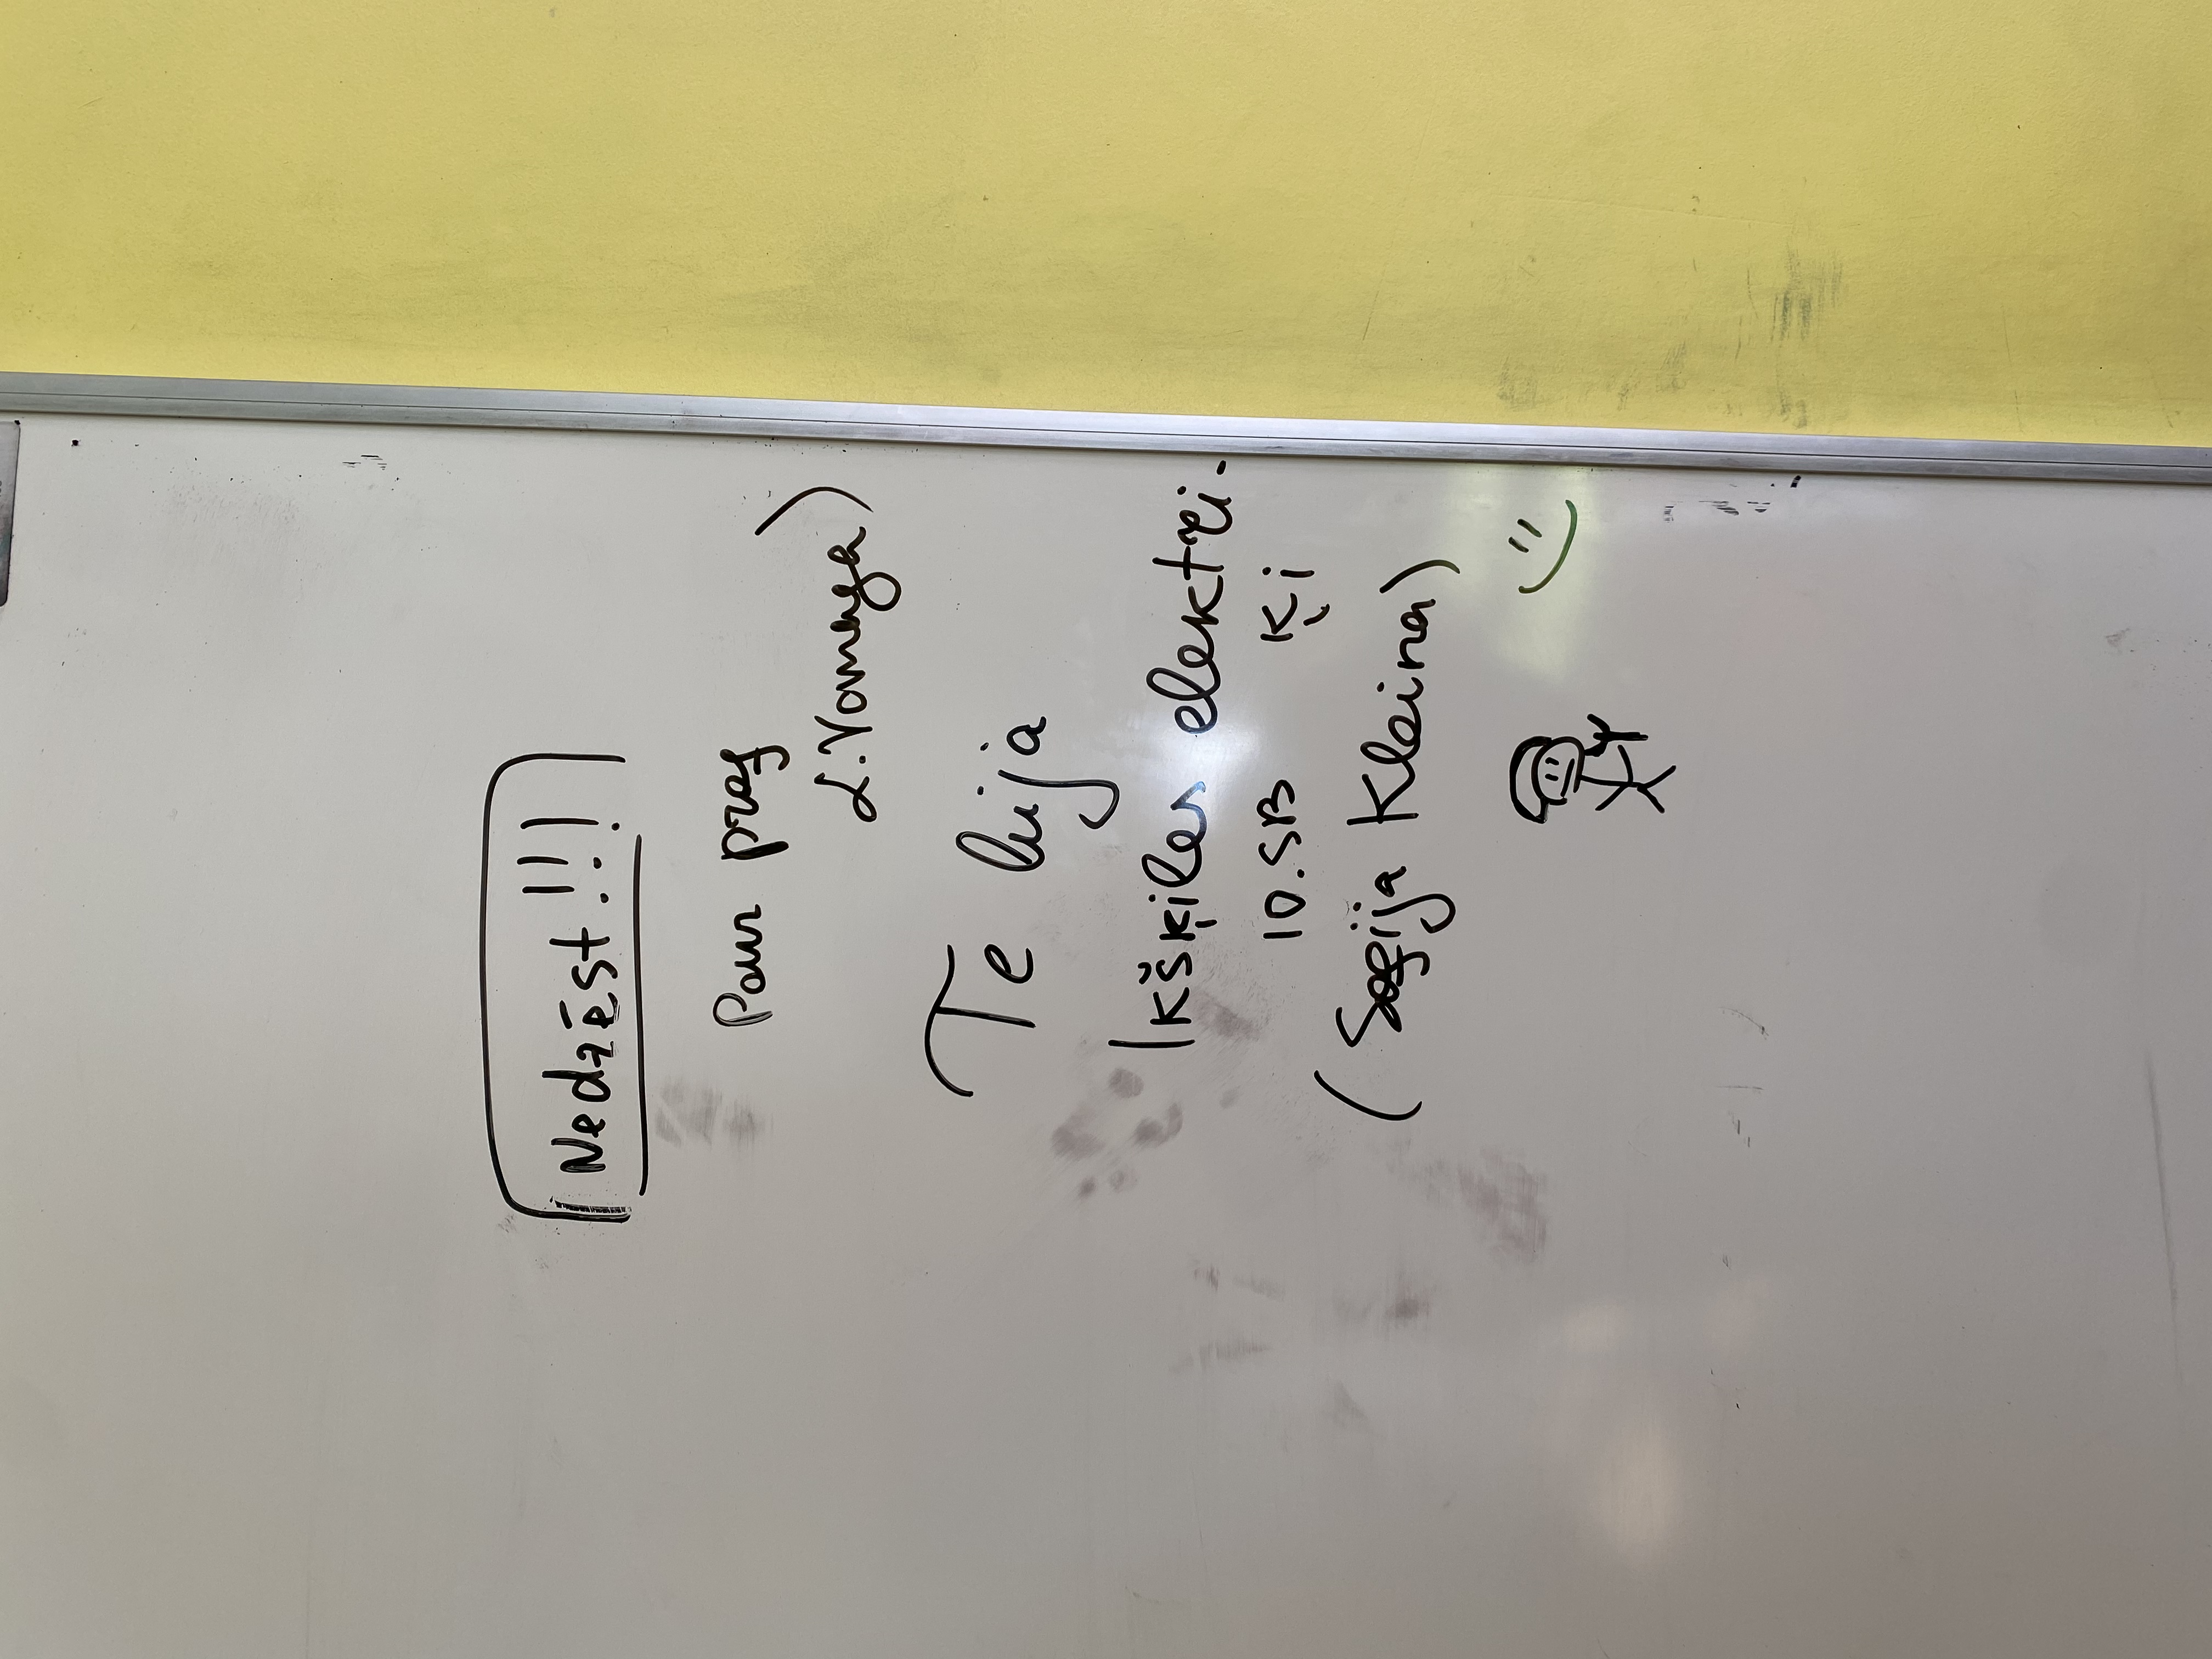 Nedzēst!!!
Paur prof
L. Vomega)
Te bija
Ikšķiles elektri-
10.SB ķi
(Sofija Kleina)
:)